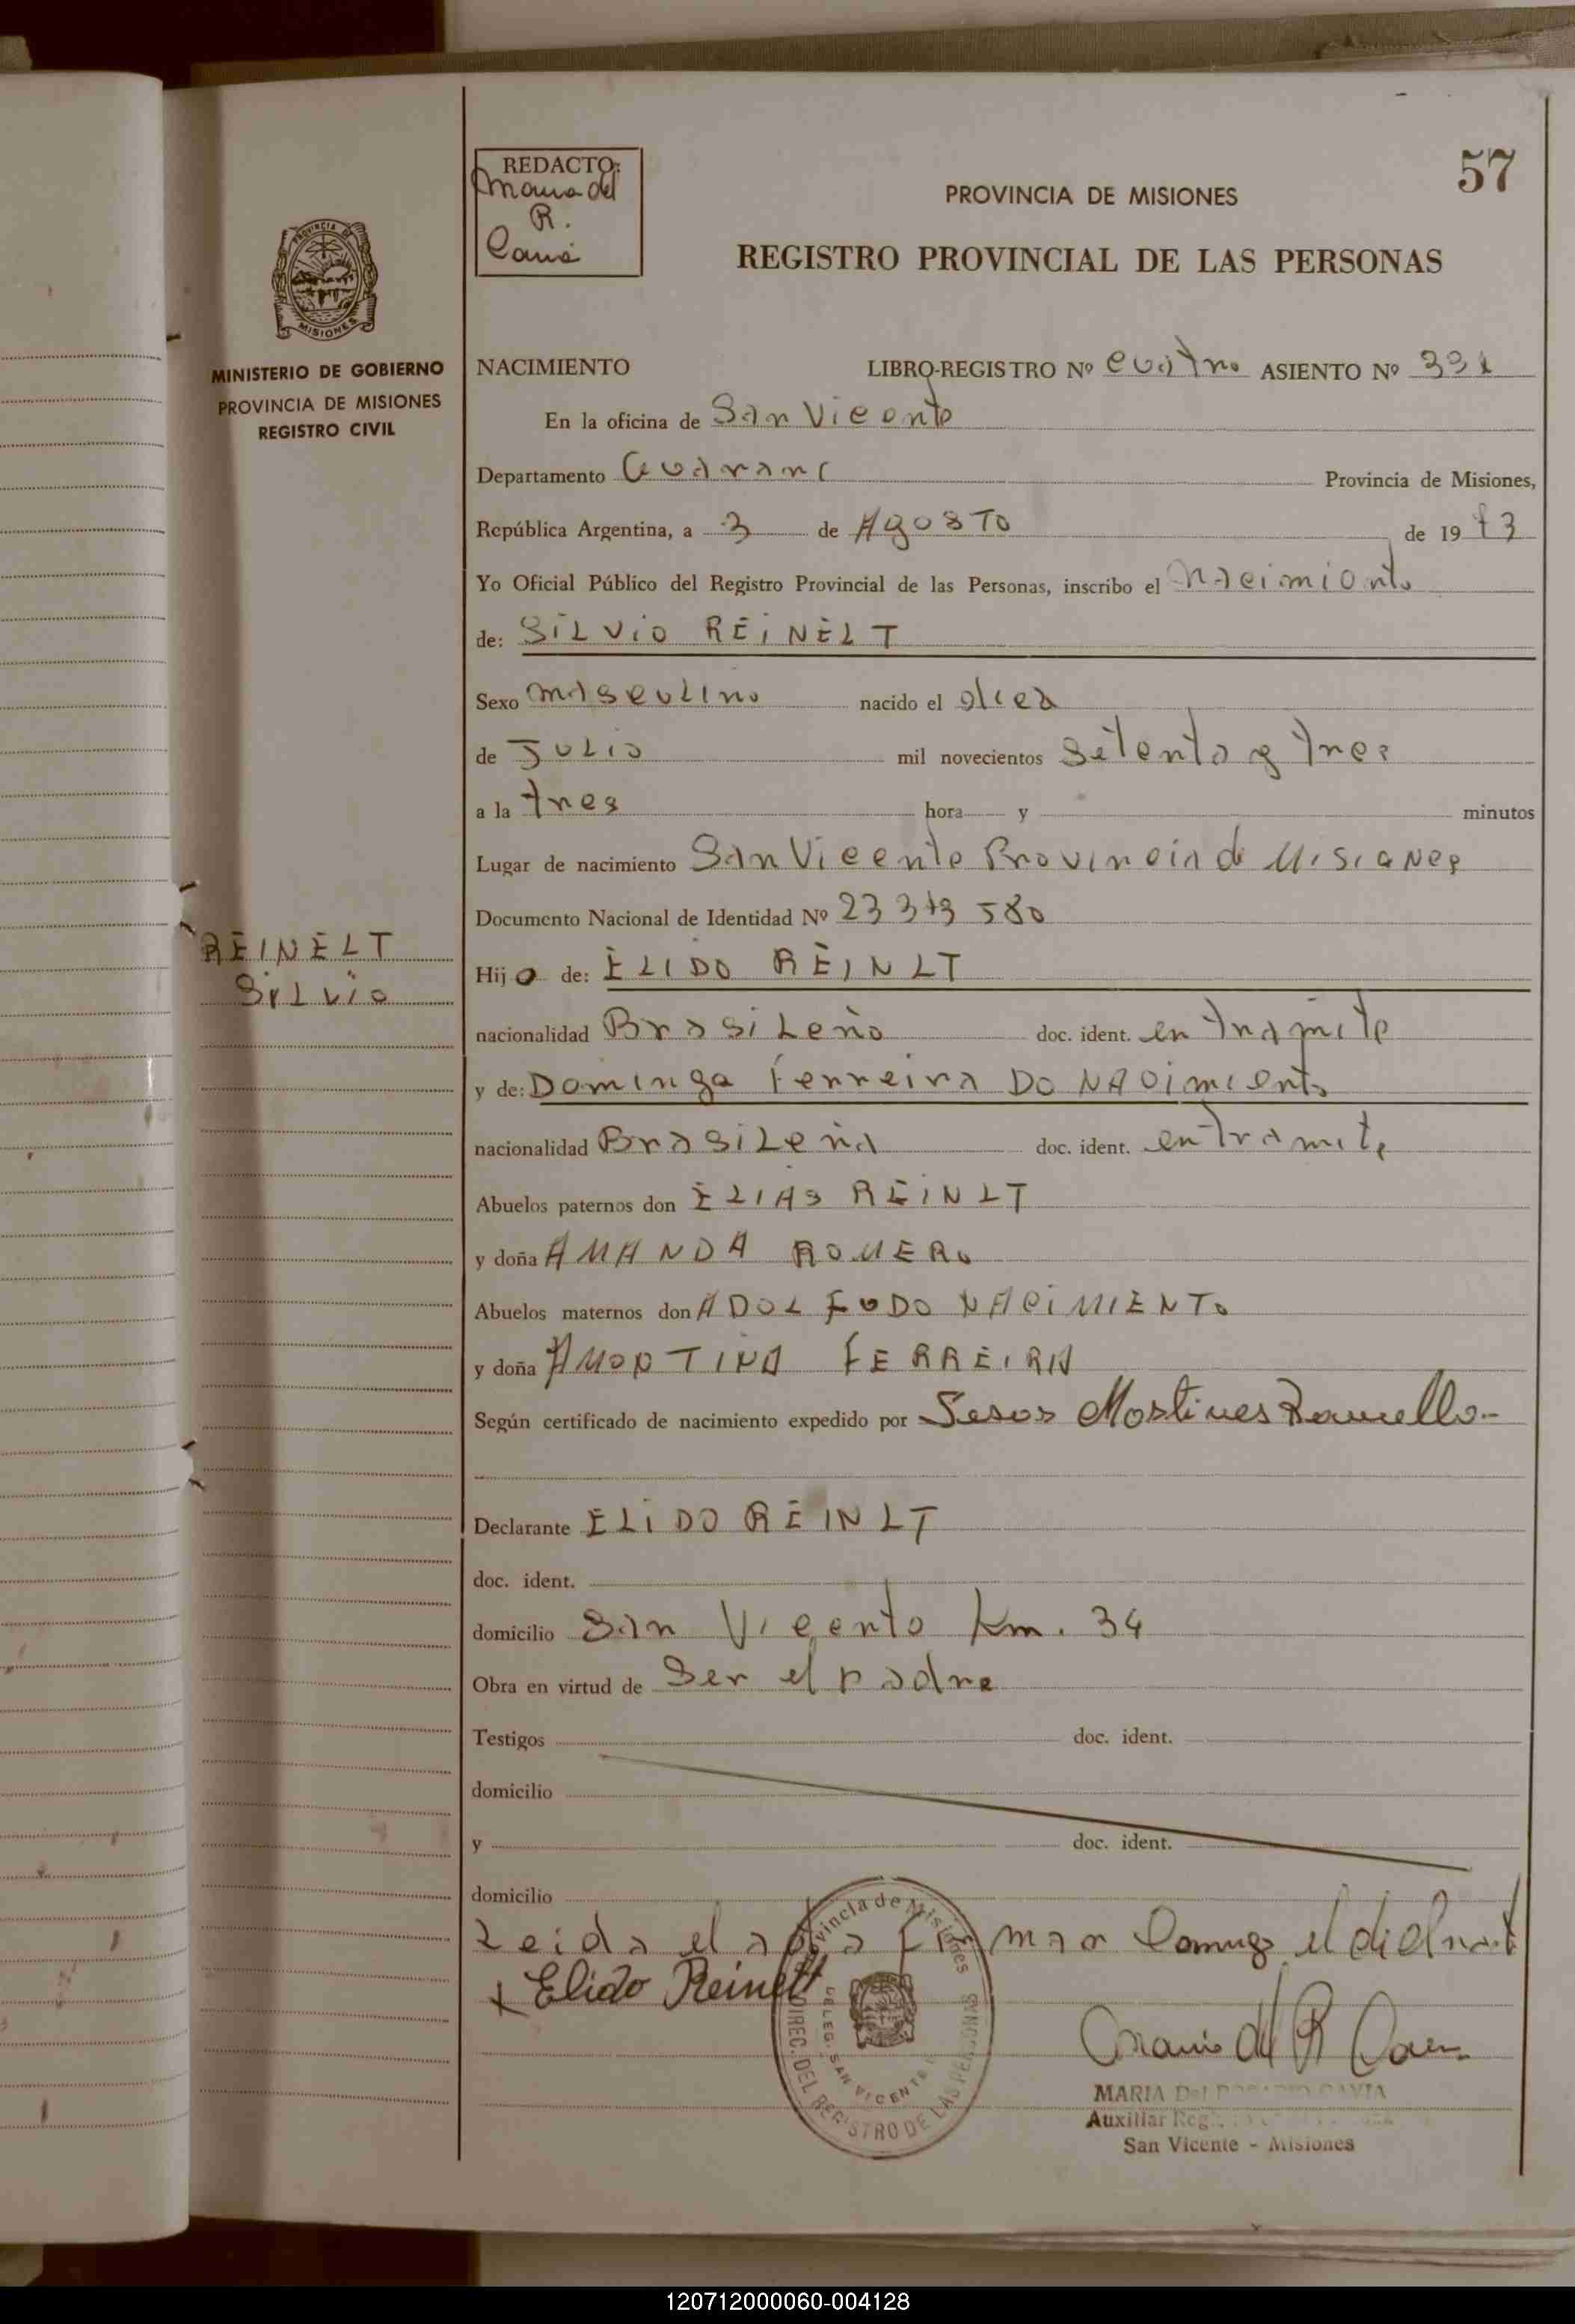 57
REDACTO:
Maria del
R.
PROVINCIA DE MISIONES
REGISTRO PROVINCIAL DE LAS PERSONAS
PROVINCIA DE
MISIONES
MINISTERIO DE GOBIERNO
PROVINCIA DE MISIONES
REGISTRO CIVIL
NACIMIENTO LIBRO-REGISTRO Nº cuatro ASIENTO Nº 331
En la oficina de San Vicente
Departamento Guarani Provincia de Misiones,
República Argentina, a 3 de Agosto de 1973
Yo Oficial Público del Registro Provincial de las Personas, inscribo el Nacimiento
de: SILVIO REINELT
Sexo masculino nacido el diez
de Julio mil novecientos setenta y tres
a la tres hora y minutos
Lugar de nacimiento San Vicente Provincia de Misiones
Documento Nacional de Identidad Nº 23 373 580
REINELT
Silvio
Hijo de: ELIDO REINLT
nacionalidad Brasileño doc. ident. en tramite
y de: Dominga Ferreira DO NACIMIENTO
nacionalidad Brasileña doc. ident. en tramite
Abuelos paternos don ELIAS REINLT
y doña AMANDA ROMERO
Abuelos maternos don ADOLFO DO NACIMIENTO
y doña FERREIRA
Según certificado de nacimiento expedido por
Declarante ELIDO REINLT
doc. ident.
domicilio San Vicente Km. 34
Obra en virtud de Ser el padre
Testigos doc. ident.
domicilio
y doc. ident.
domicilio
Leida el acta firman
x Elido Reinelt
Provincia de Misiones
DIREC. DEL REGISTRO DE LAS PERSONAS
DELEG. SAN VICENTE
Maria del R
MARIA DEL ROSARIO
Auxiliar
San Vicente - Misiones
120712000060-004128